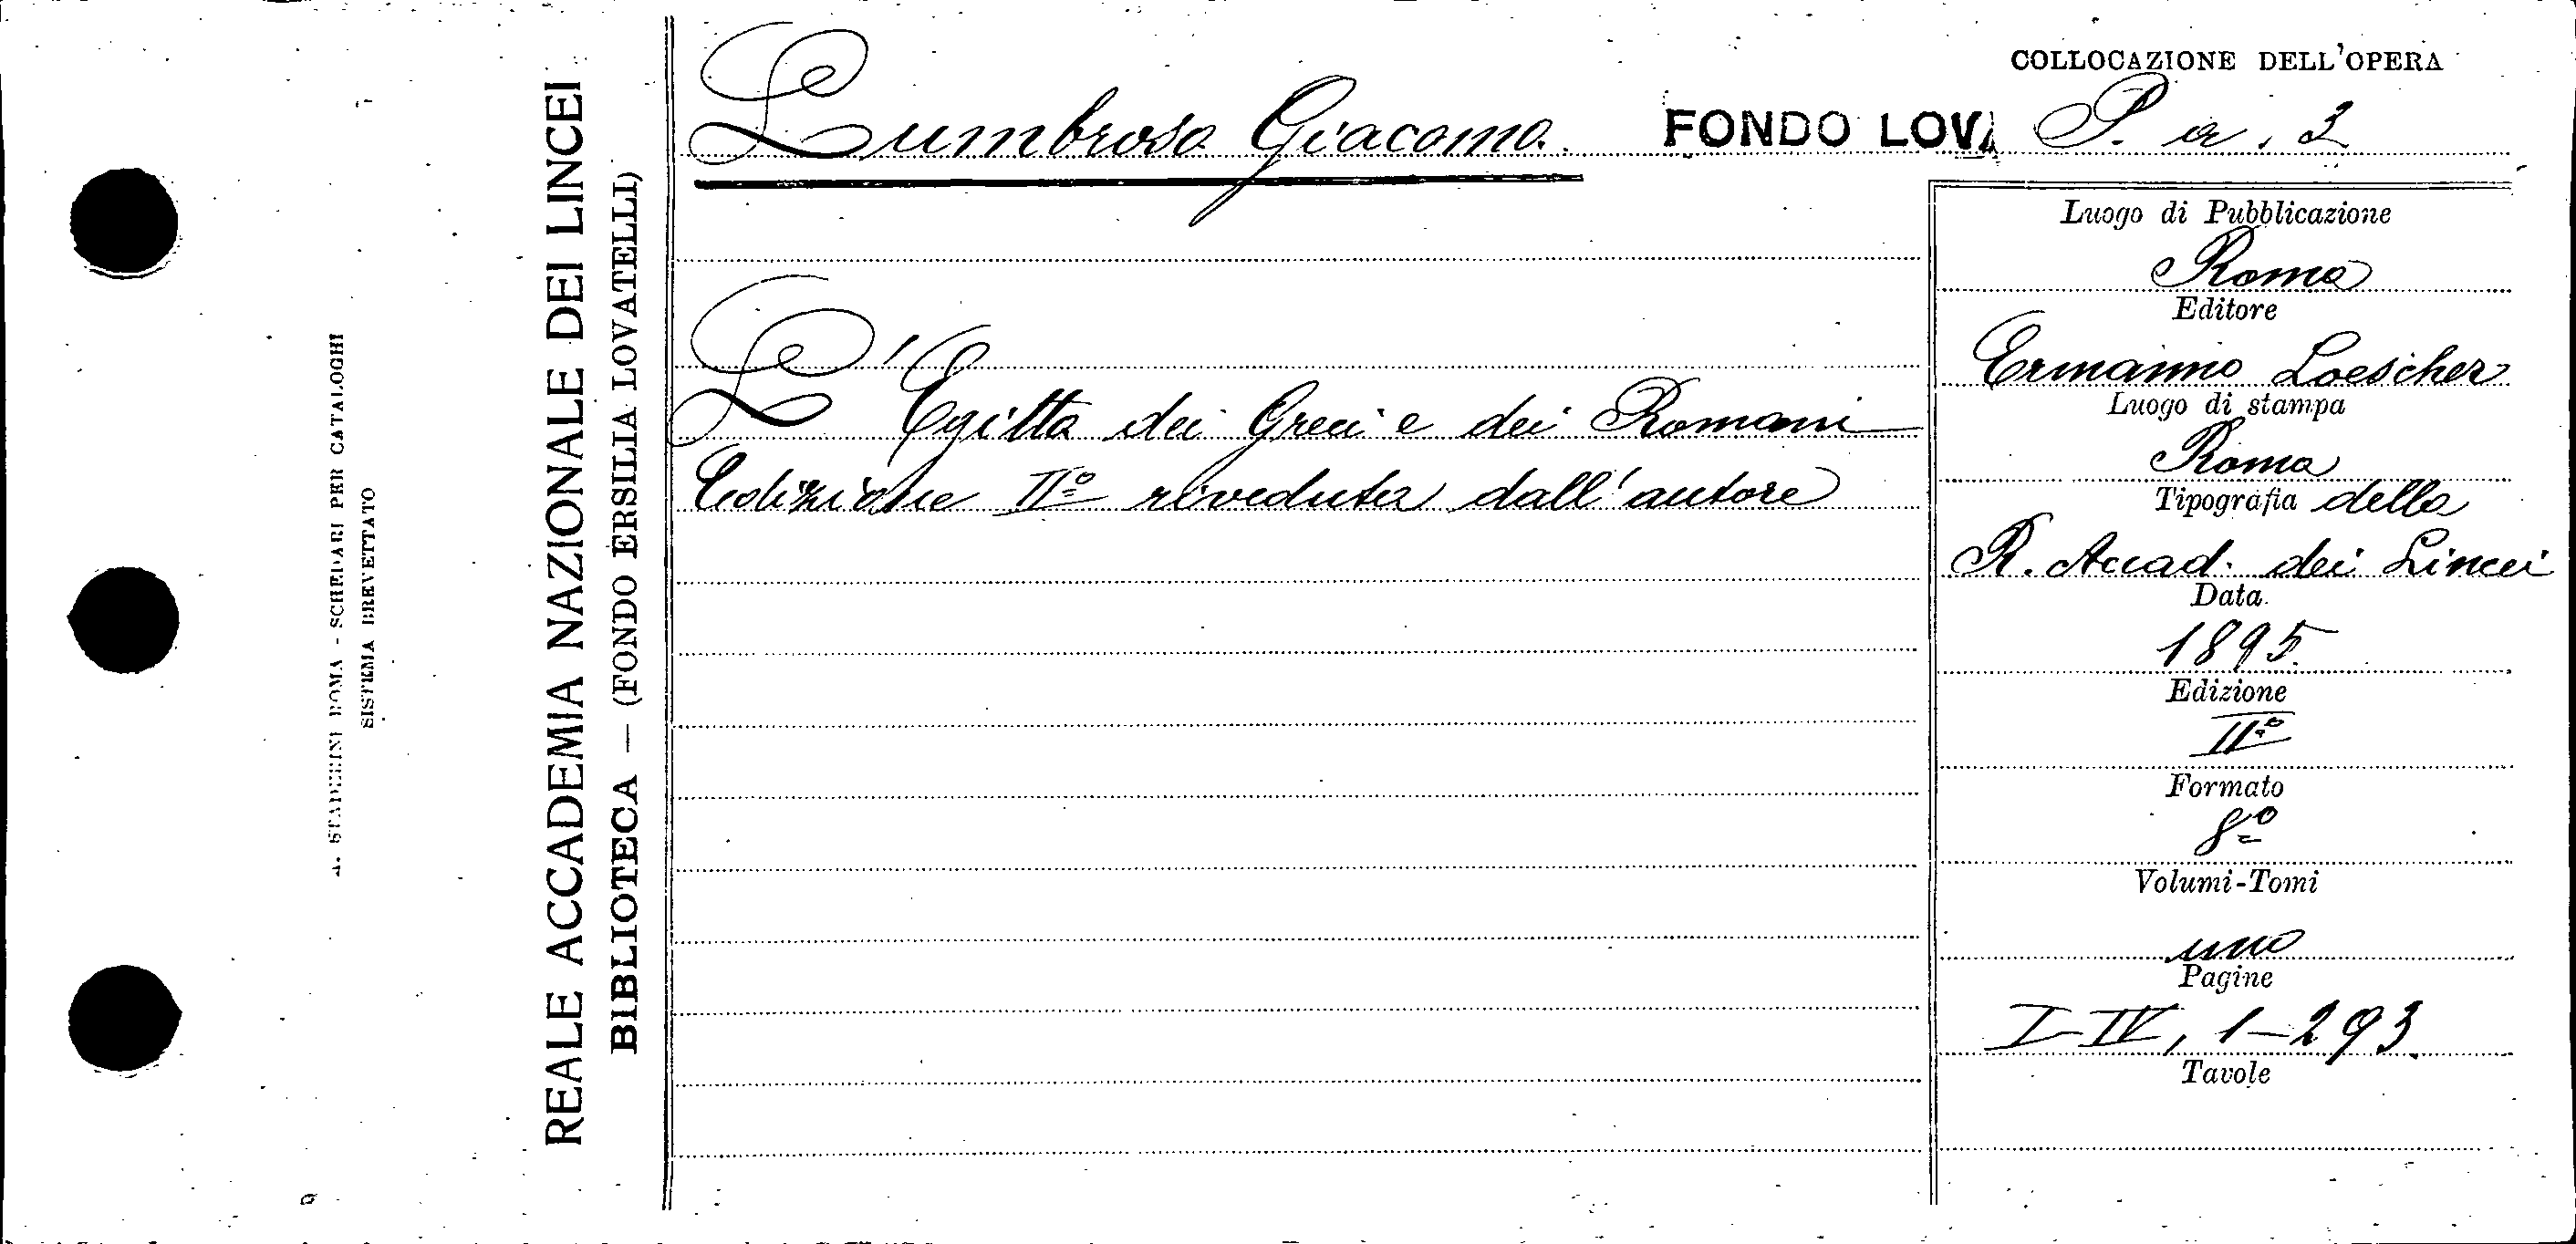 A. STADERINI ROMA - SCHEDARI PER CATALOGHI
SISTEMA BREVETTATO
REALE ACCADEMIA NAZIONALE DEI LINCEI
BIBLIOTECA — (FONDO ERSILIA LOVATELLI)
Lumbroso Giacomo.
FONDO LOV.
L'Egitto dei Greci e dei Romani
Edizione IIº riveduta dall'autore
COLLOCAZIONE DELL'OPERA
P. a. 2
Luogo di Pubblicazione
Roma
Editore
Ermanno Loescher
Luogo di stampa
Roma
Tipografia della
R. Accad. dei Lincei
Data
1895.
Edizione
IIº
Formato
8º
Volumi-Tomi
uno
Pagine
I-IV, 1-293.
Tavole